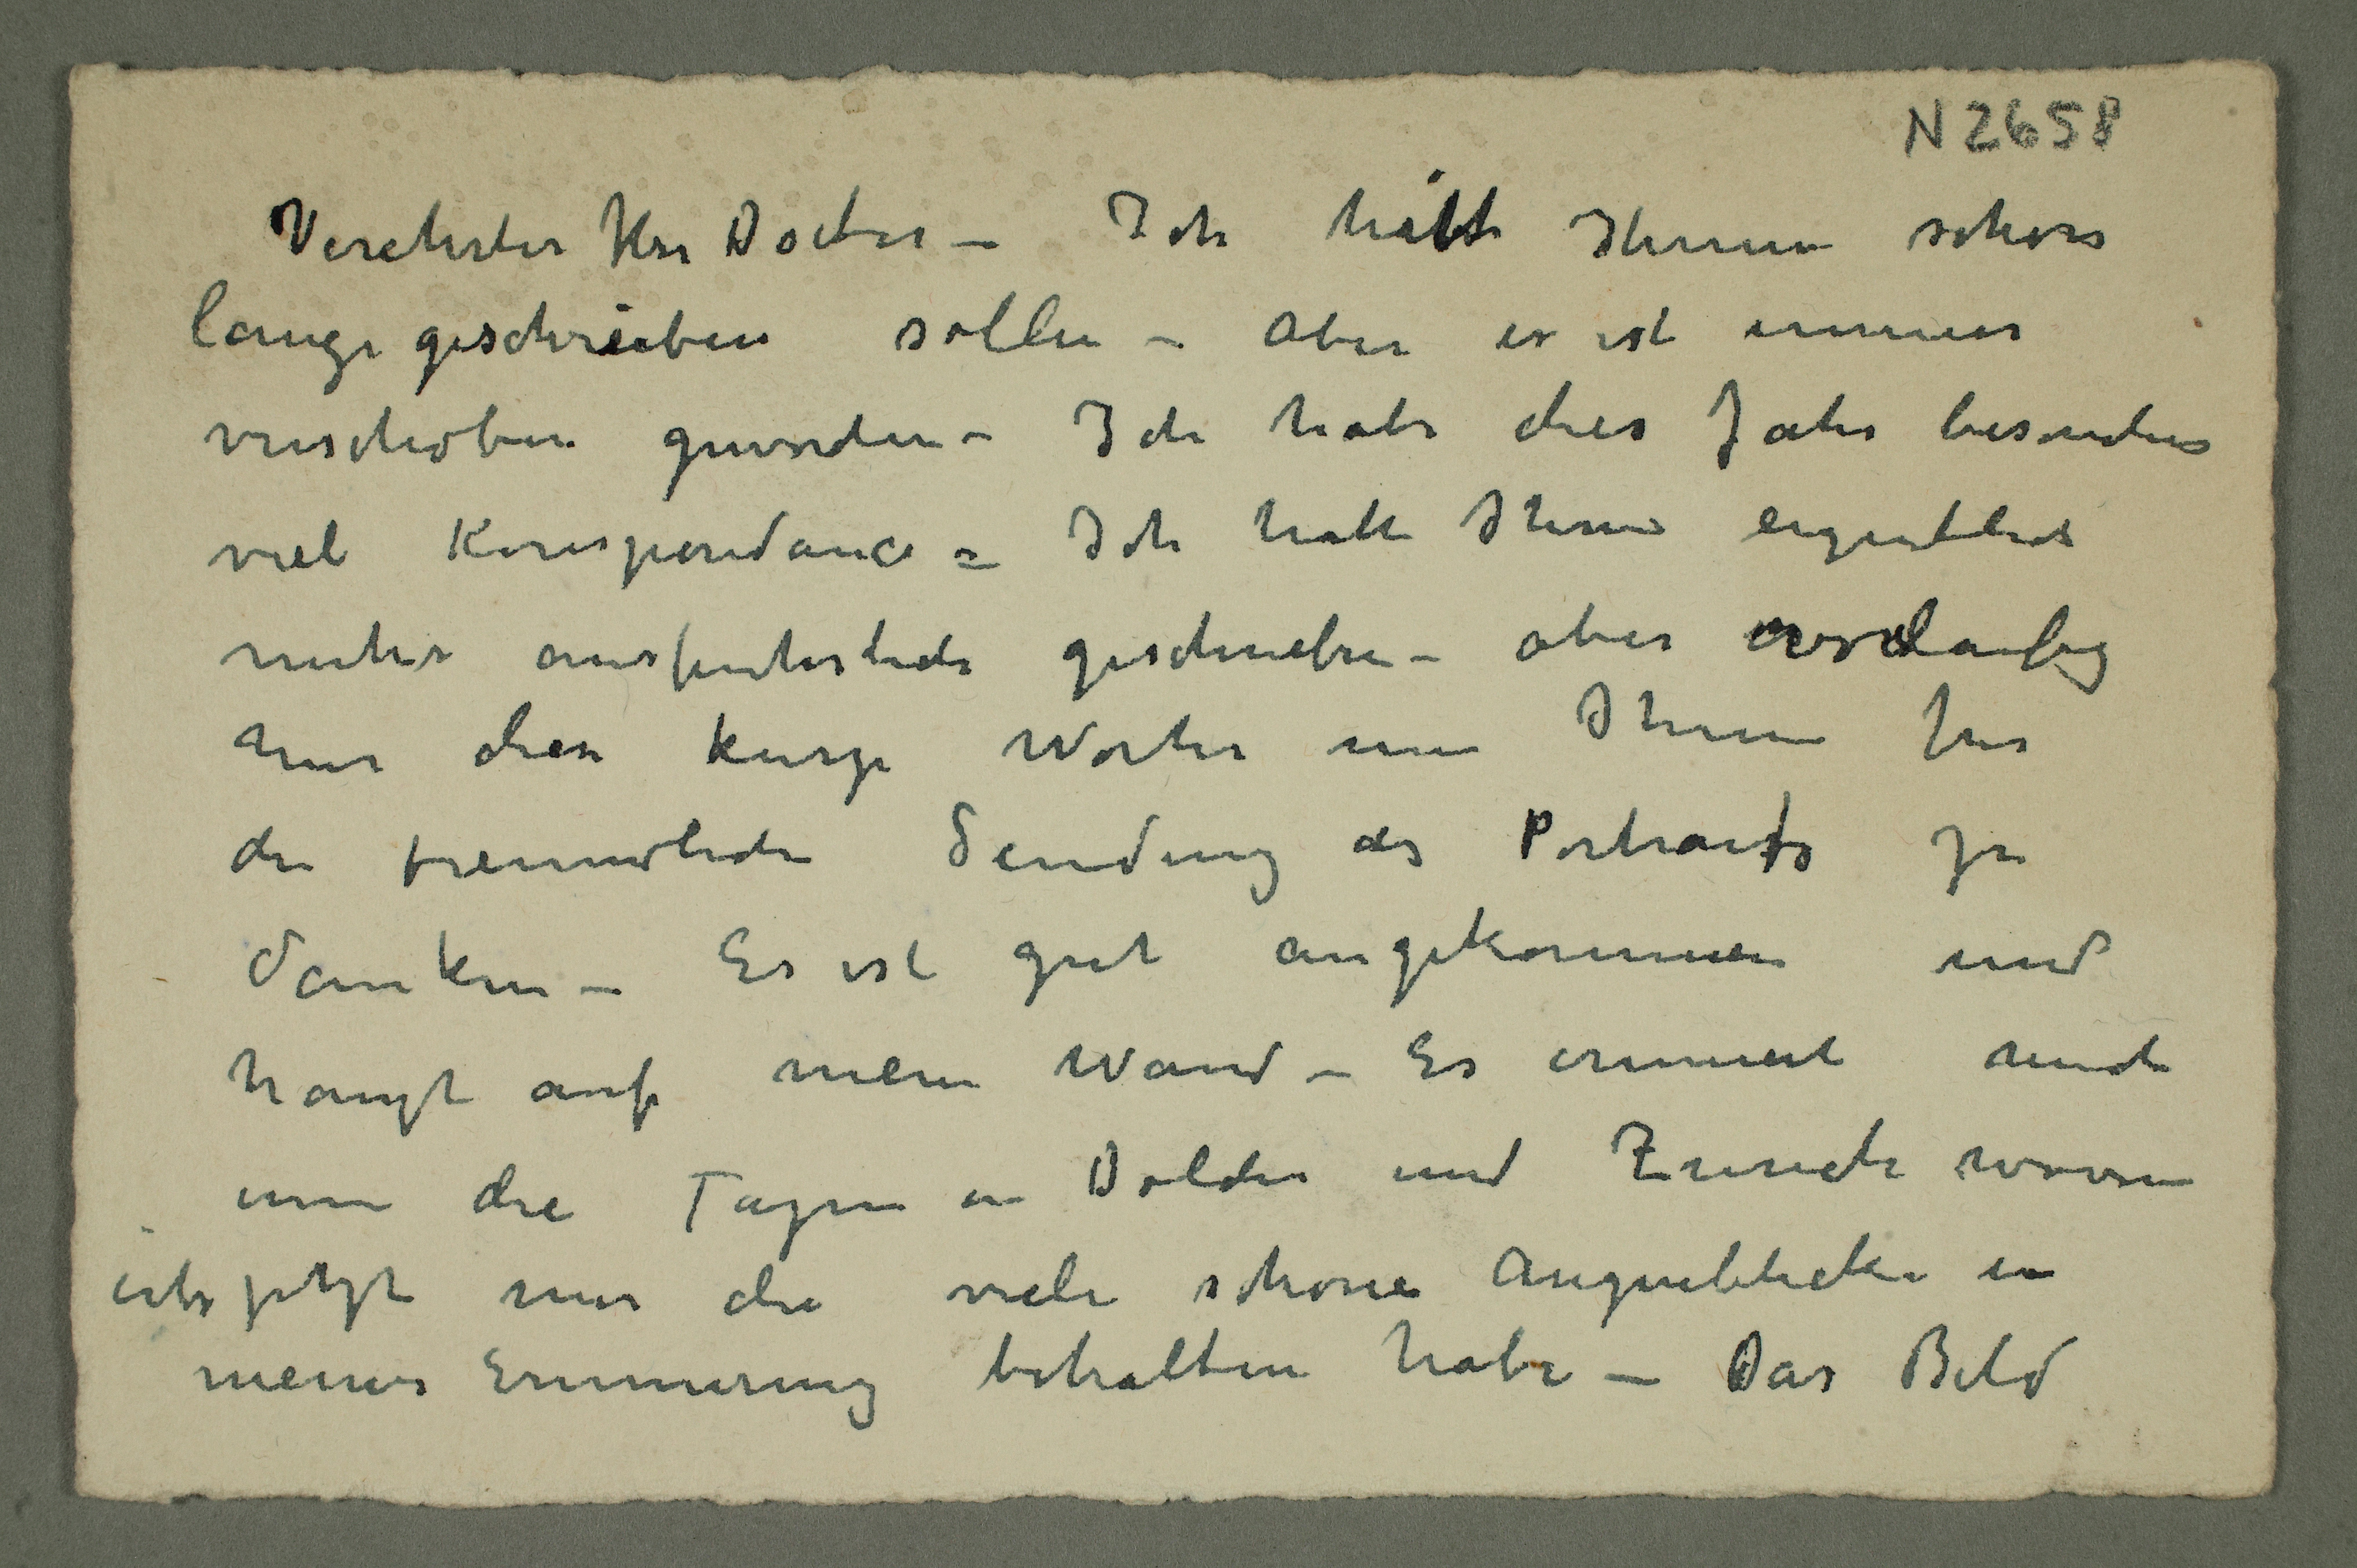 N 2658
Verehrter Herr Doctor – Ich hätte Ihnen schon
lange geschrieben sollen – aber es ist immer
verschoben geworden – Ich habe dies Jahr besonders
viel Korrespondance – Ich hatte Ihnen eigentlich
mehr ausfuhrlich geschrieben – aber vorlaufig
nur diese kurze Worter um Ihnen fur
die freundliche Sendung des Portraits zu
danken – Es ist gut angekommen und
hangt auf meine Wand – Es erinnert mich
um die Tagen in Dolder und Zurich wovon
ich jetzt nur die viele schone Augenblicke in
meiner Erinnerung behalten habe – Das Bild